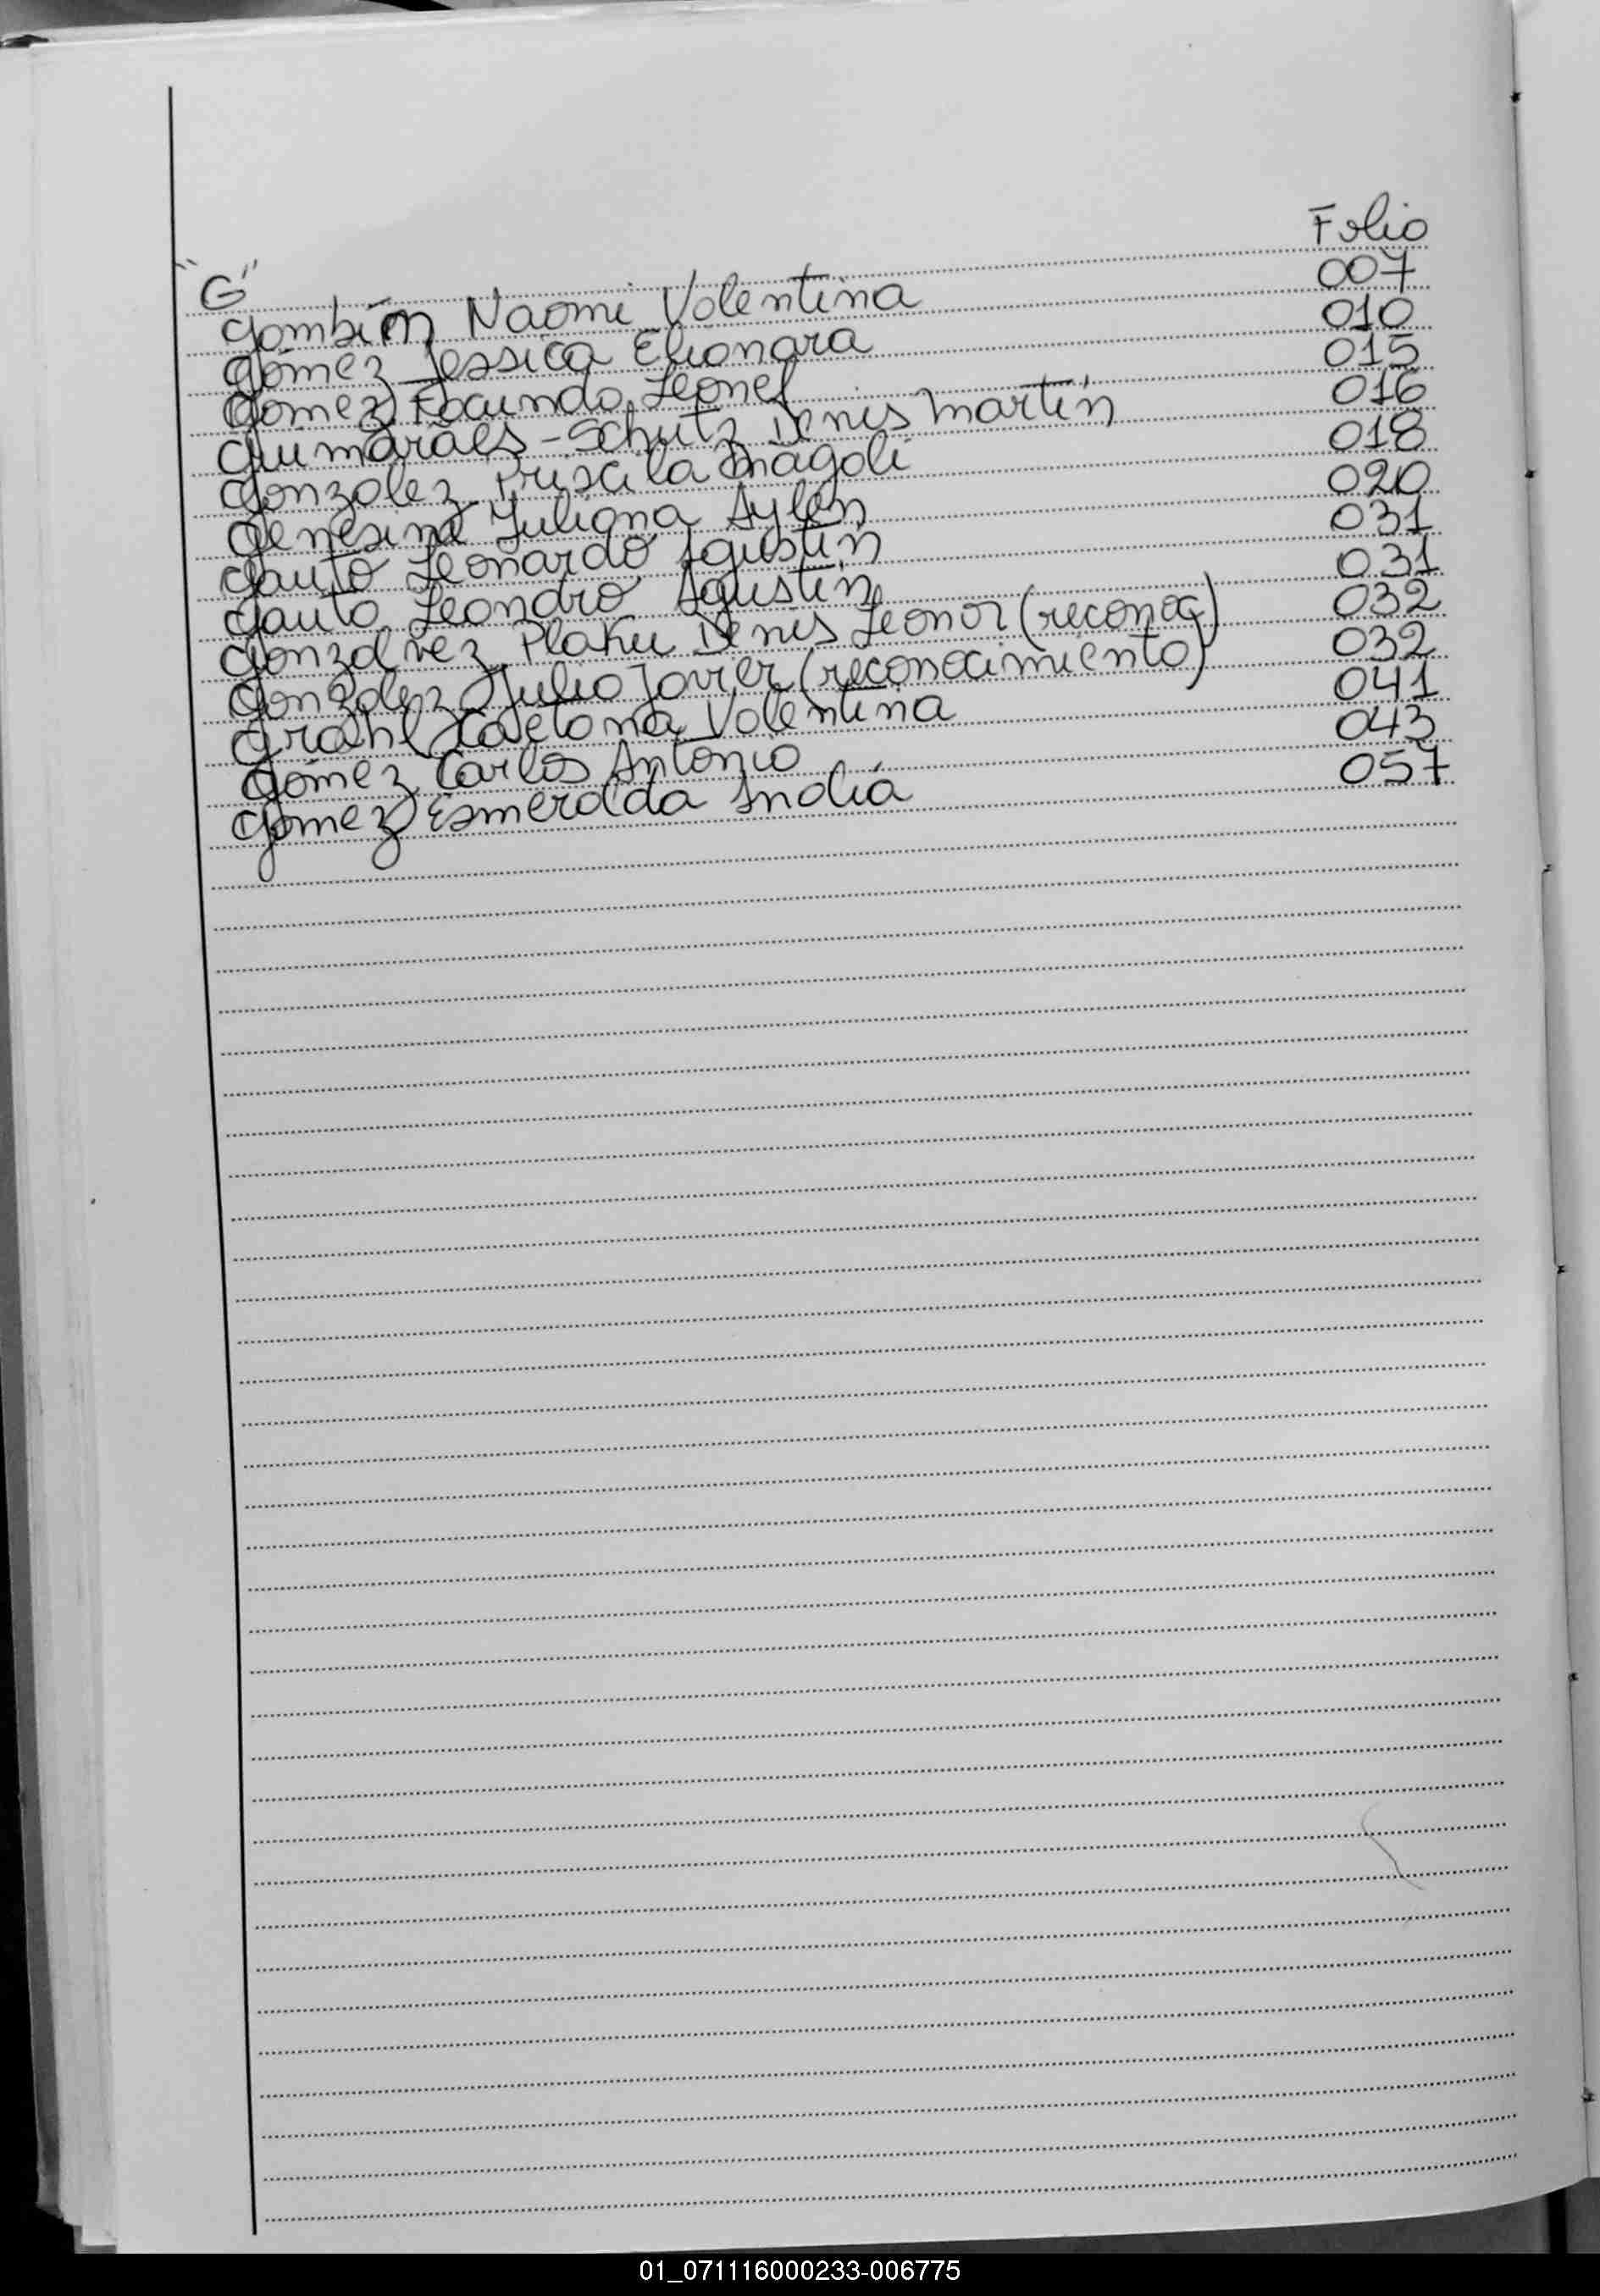 Folio
"G"
Gambín Naomi Valentina 007
Gómez Jessica Elionara 010
Gómez Facundo Leonel 015
Guimarães-Schutz Denis Martín 016
Gonzalez Priscila Magali 018
Juliana Aylén 020
Gauto Leonardo Agustín 031
Gauto Leandro Agustín 031
Gonzalvez Plaku Denis Leonor (reconoc) 032
Gonzalez Julio Javier (reconocimiento) 032
Grahl Kaetana Valentina 041
Gómez Carlos Antonio 043
Gómez Esmeralda India 057
01_071116000233-006775